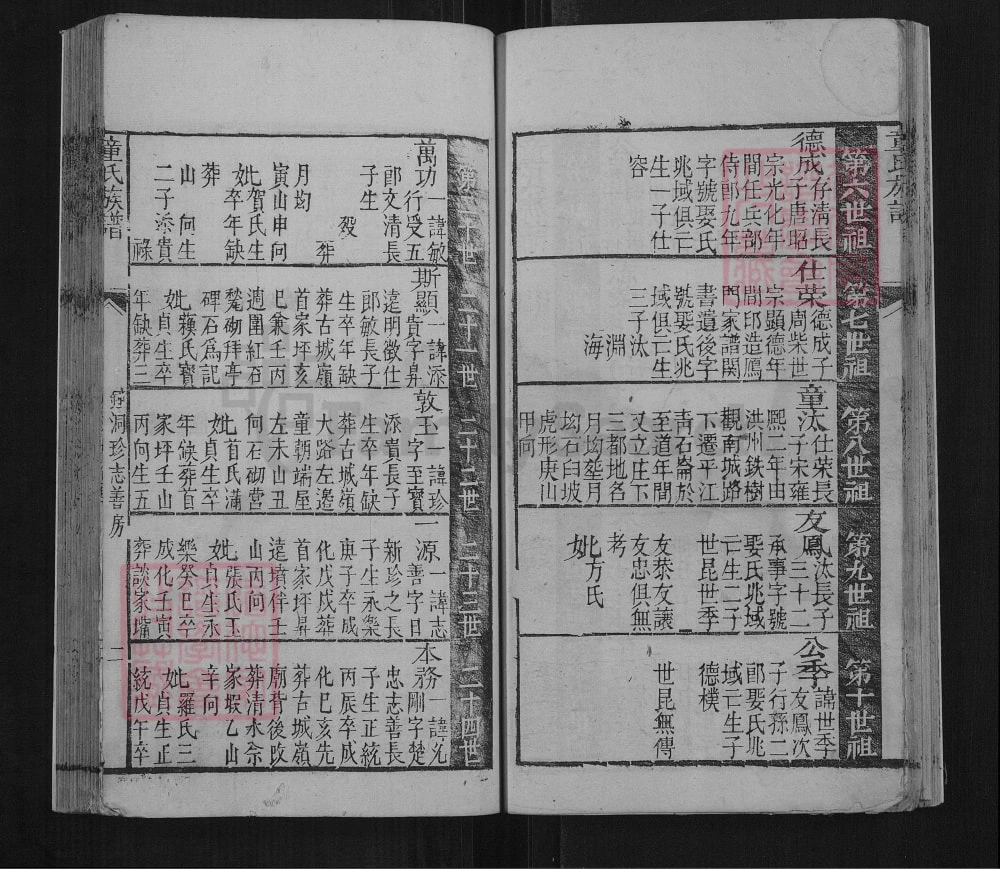 童氏族譜
第六世祖
德成存淸長
子唐昭
宗光化年
間任兵部
侍郎九年
字號娶氏
兆域俱亡
生一子仕
容
第七世祖
仕榮德成子
周柴世
宗顯德年
間印造鴈
門家譜関
書遺後字
號娶氏兆
域俱亡生
三子汰
淵
海
第八世祖
童汰仕荣長
子宋雍
熙二年由
洪州鉄樹
觀南城路
下遷平江
靑石崙於
至道年間
又立庄下
三都地名
月均塋月
均石臼坡
虎形庚山
甲向
第九世祖
友鳳汰長子
三十二
承事字號
娶氏兆域
亡生二子
世昆世季
友恭友讓
友忠俱無
考
妣方氏
第十世祖
公季諱世季
友鳳次
子行孫二
郎娶氏兆
域亡生子
德樸
世昆無傳
童氏族譜
第二十世
萬功一諱敏
行受五
郎文清長
子生
歿
葬
月均
寅山申向
妣贺氏生
卒年缺
葬
山向生
二子添貴
祿
二十一世
斯顯一諱添
貴字昇
遠明徵仕
郎敏長子
生卒年缺
葬古城嶺
首家坪亥
巳兼壬丙
週圍紅石
甃砌拜亭
碑石爲記
妣蘓氏寳
貞生卒
年缺葬三
二十二世
敦玉一諱珍
字至寳
添貴長子
生卒年缺
葬古城嶺
大路左邉
童朝端屋
左未山丑
向石砌营
首氏滿
妣貞生卒
年候葬首
家坪壬山
丙向生五
二十三世
一源一諱志
善字日
新珍之長
子生永樂
庚子卒成
化戊戌葬
首家坪昇
遠墳伴壬
山丙向
妣張氏玉
貞生永
樂癸巳卒
成化壬寅
葬談家壠
二十四世
本務一諱光
剛字楚
忠志善長
子生正統
丙辰卒成
化巳亥先
葬古城嶺
廟背後改
葬清水佘
家蝦乙山
辛向
妣羅氏三
貞生正
統戊午卒
洞珍志善房
二